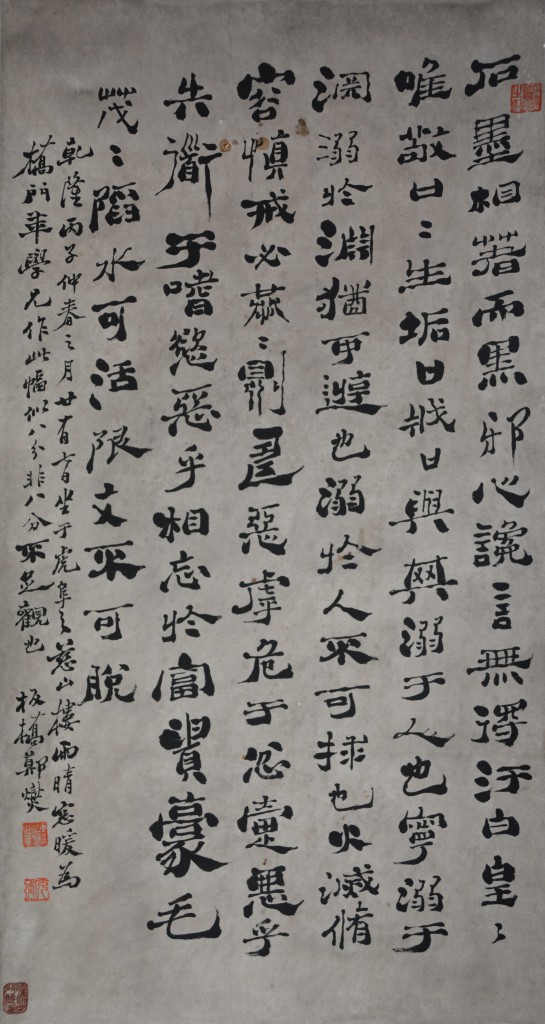 石墨相著而黑邪心讒言無淂汙白皇〻
唯敬口〻生垢口戕口與其溺于人也寧溺于
淵溺於淵猶可遊也溺於人不可捄也火滅脩
容慎戒必恭〻則壽惡虖危于忿疐惡乎
失衜于嗜慾惡乎相忘於富貴豪毛
茂〻陷水可活陷文不可脫
乾隆丙子仲春之月廿有日坐于虎阜之山樓雨晴窓暖為
橋門年學兄作此幅似八分非八分不足觀也 板橋鄭燮